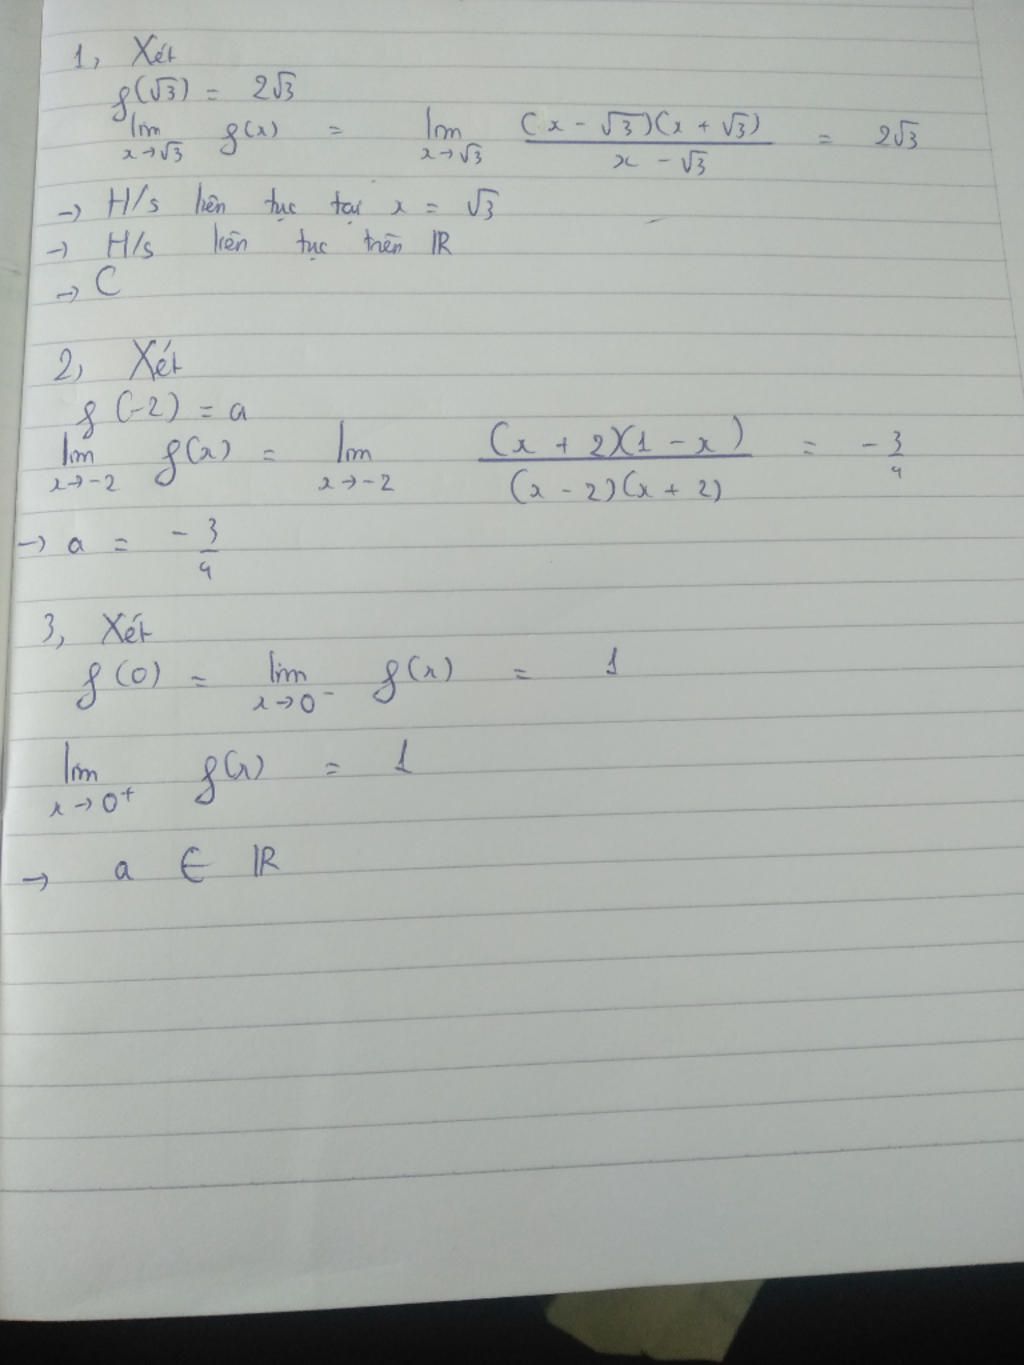 1, Xét
f(√3) = 2√3
lim x→√3 f(x) = lim x→√3 (x - √3)(x + √3) / x - √3 = 2√3
→ H/s liên tục tại x = √3
→ H/s liên tục trên ℝ
→ C
2, Xét
f(-2) = a
lim x→-2 f(x) = lim x→-2 (x + 2)(1 - x) / (x - 2)(x + 2) = -3/4
→ a = -3/4
3, Xét
f(0) = lim x→0⁻ f(x) = 1
lim x→0⁺ f(x) = 1
→ a ∈ ℝ